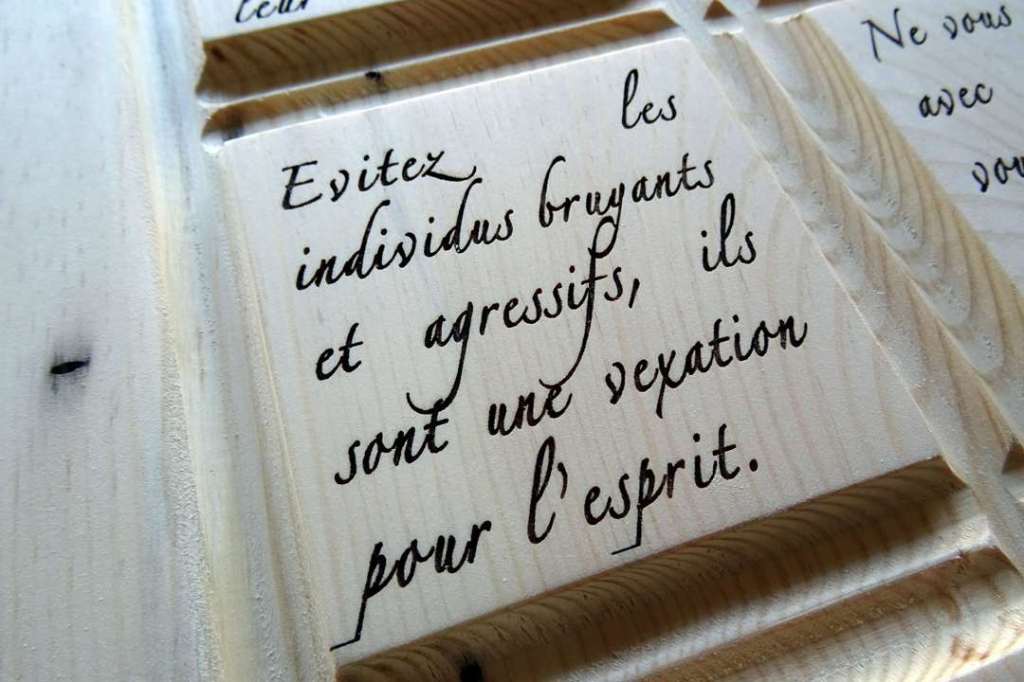 Evitez les
individus bruyants
et agressifs, ils
sont une vexation
pour l'esprit.
Ne vous
avec